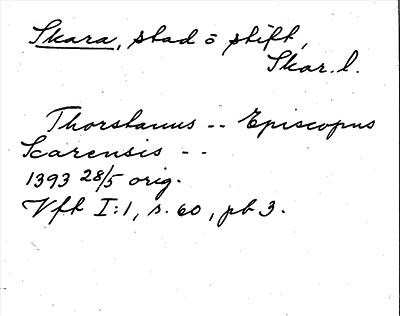 Skara, stad o stift,
Skar. l.
Thorstanus -- Episcopus
Scarensis --
1393 28/5 orig.
Vft I:1, s. 60, pb 3.